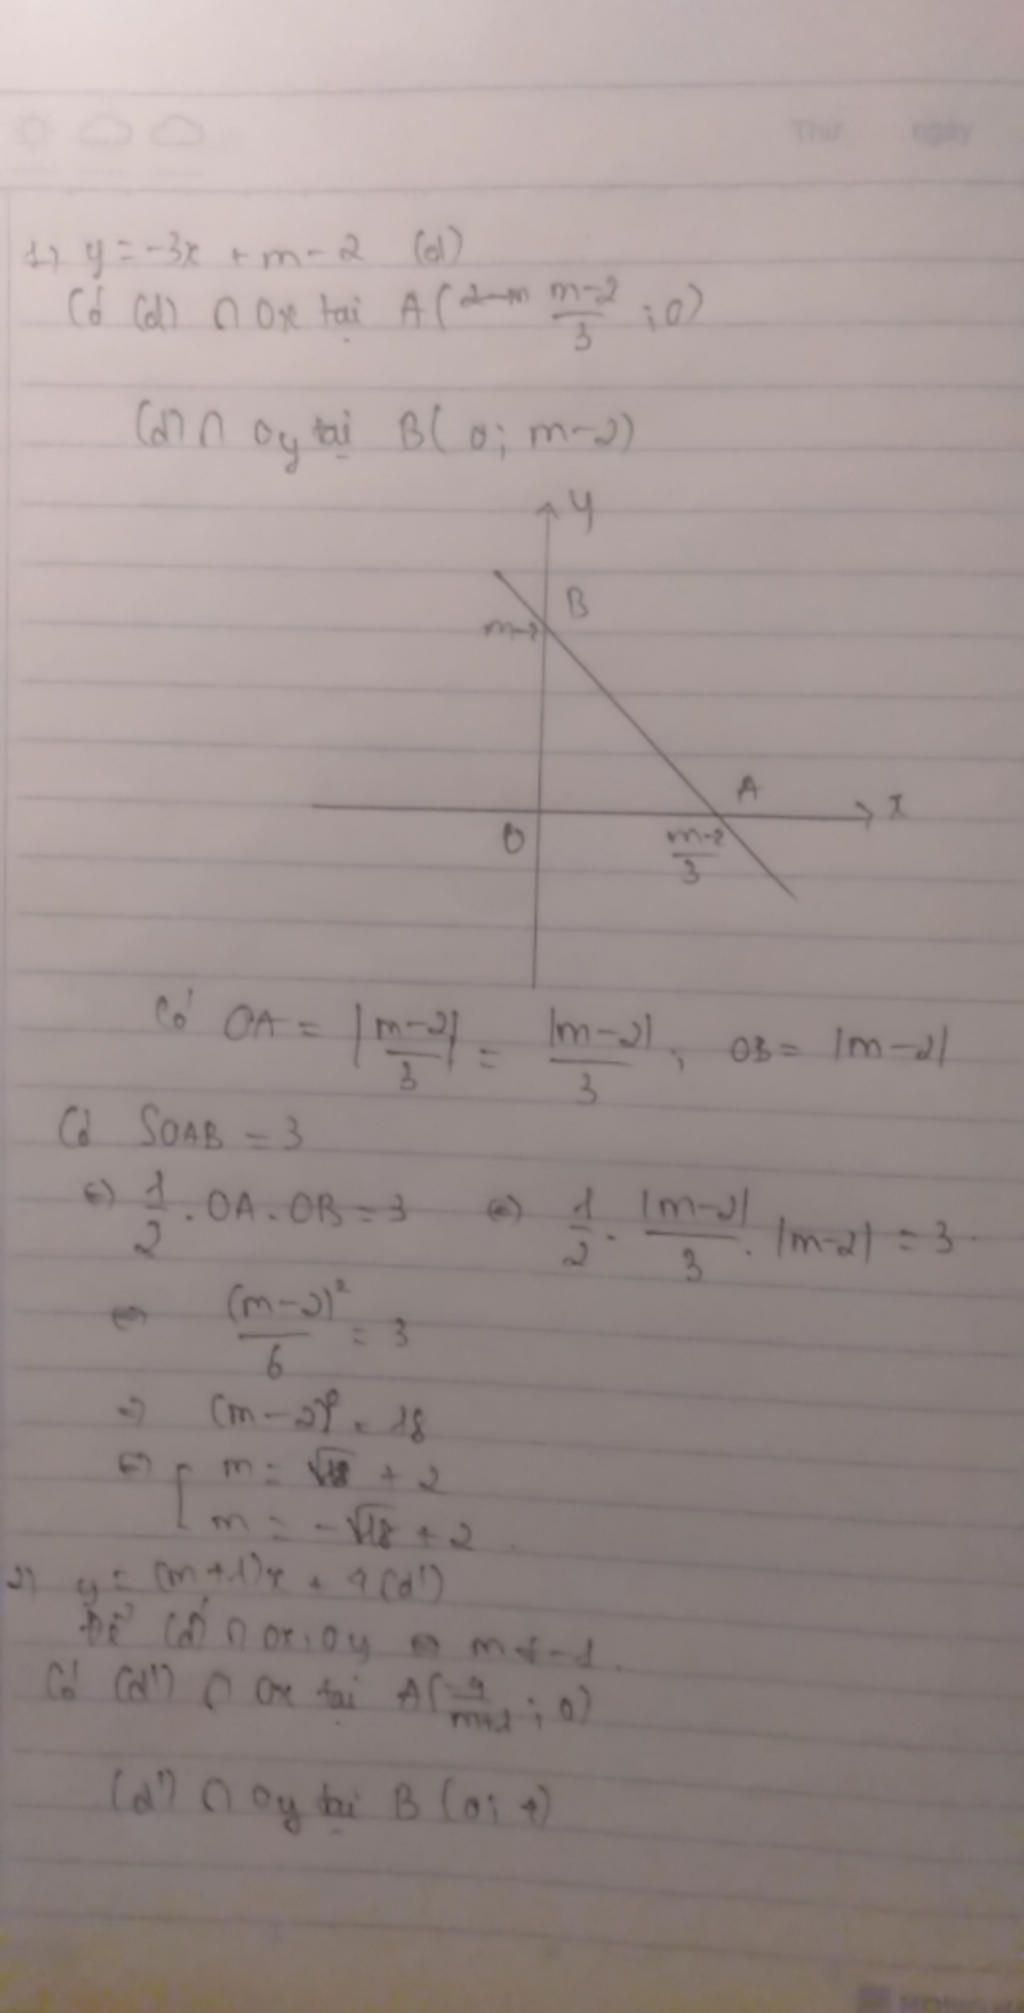 Thứ ngày
1) y = -3x + m - 2 (d)
Có (d) ∩ Ox tại A( m-2/3 ; 0)
(d) ∩ Oy tại B( 0; m-2)
y
B
m-2
A
x
O
m-2/3
Có OA = |m-2/3| = |m-2|/3 ; OB = |m-2|
Có SOAB = 3
⇔ 1/2 . OA . OB = 3 ⇔ 1/2 . |m-2|/3 . |m-2| = 3
⇔ (m-2)²/6 = 3
⇒ (m-2)² = 18
⇔ [ m = √18 + 2
m = -√18 + 2
2) y = (m+1)x + 4 (d')
Để (d') ∩ Ox, Oy ⇔ m ≠ -1.
Có (d') ∩ Ox tại A( -4/m+1 ; 0)
(d') ∩ Oy tại B (0; 4)